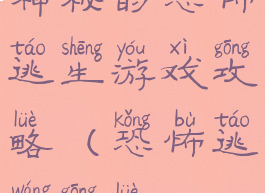 神秘的恐怖
táo shēng yóu xì gōng
逃生游戏攻
lüè kǒng bù táo
略(恐怖逃
wáng gōng lüè